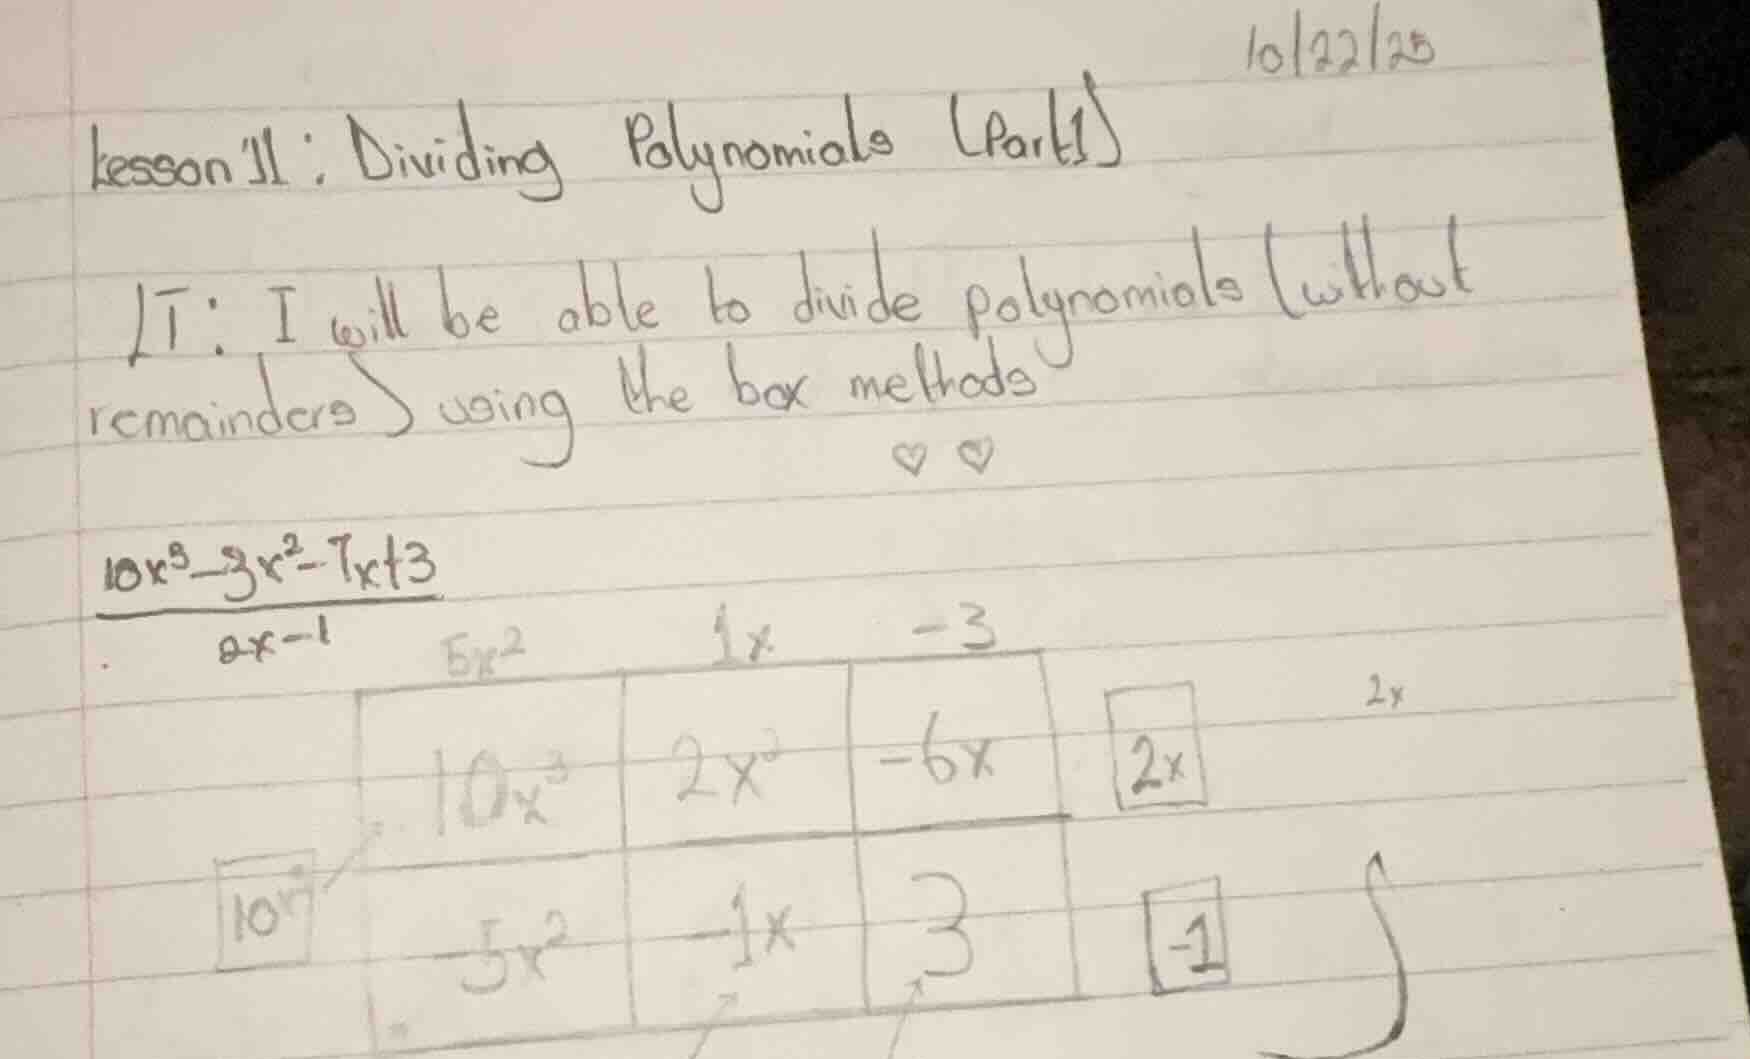 10/22/25
Lesson 11: Dividing Polynomials (Part 1)
LT: I will be able to divide polynomials (without
remainders) using the box methods
♡ ♡
10x³-3x²-7x+3
2x-1
5x² 1x -3
10x³ 2x² -6x 2x 2x
10x³
-5x² -1x 3 -1